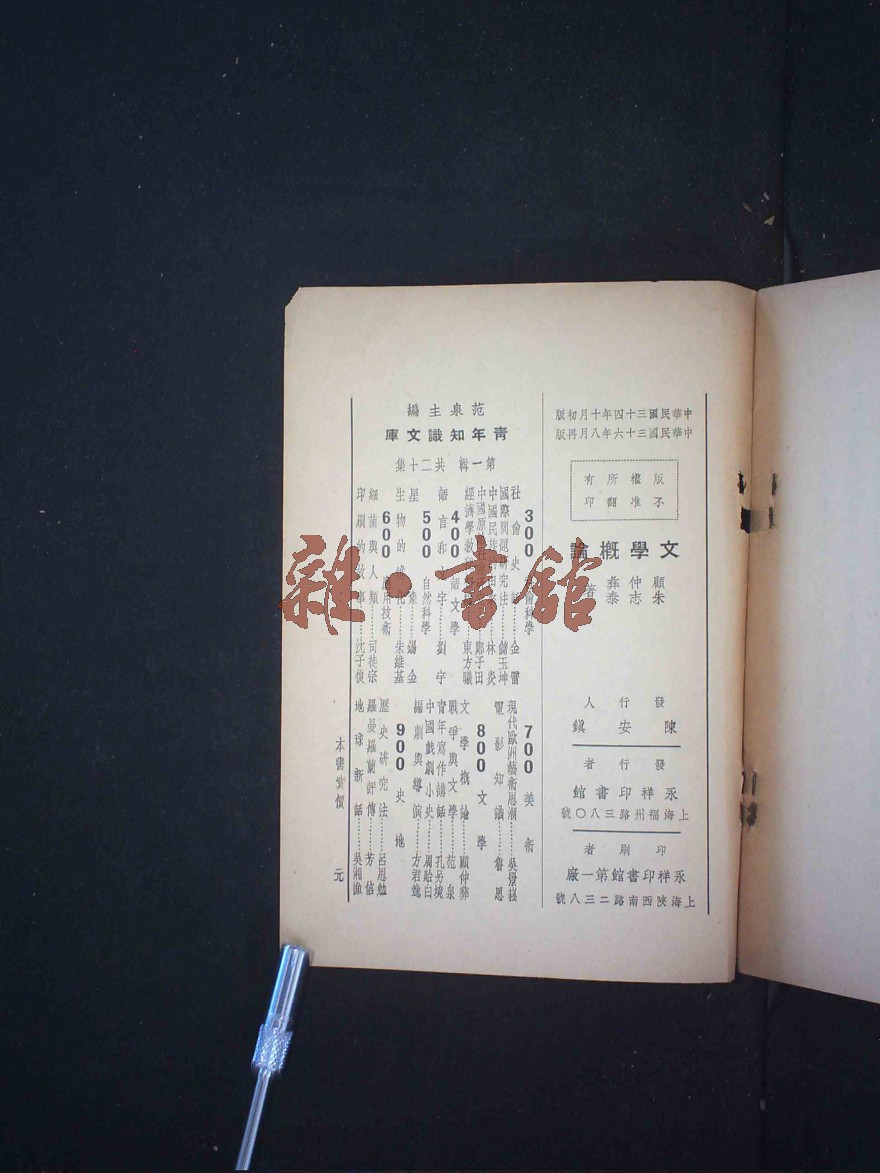 中華民國三十四年十月初版
中華民國三十六年八月再版
版權所有
不准翻印
文學概論
顧仲彝
朱志泰
著
發行人
陳安鎮
發行者
永祥印書館
上海福州路三八〇號
印刷者
永祥印書館第一廠
上海陝西南路二三八號
范泉主編
青年知識文庫
第一輯 共二十集
300 社會科學
社會史話 金雷
國際問題研究法
中國民族 林炎
中國原 鄭子田
經濟學 東方曦
400 語文學
語言和文字 劉宇
500 自然科學
星象 錫金
生物的進化 朱維基
600 應用技術
細菌與人類 司徒宗
印刷的故事 沈子復
700 美術
現代歐洲藝術思潮 吳景崧
電影知識 魯思
800 文學
文學概論 顧仲彝
戰爭與文學 范泉
青年寫作講話 孔另境
中國戲劇小史 周貽白
編劇與導演 方君逸
900 史地
歷史研究法 呂思勉
羅曼羅蘭評傳 芳信
地球新話 吳湘漁
本書實價 元
雜·書館